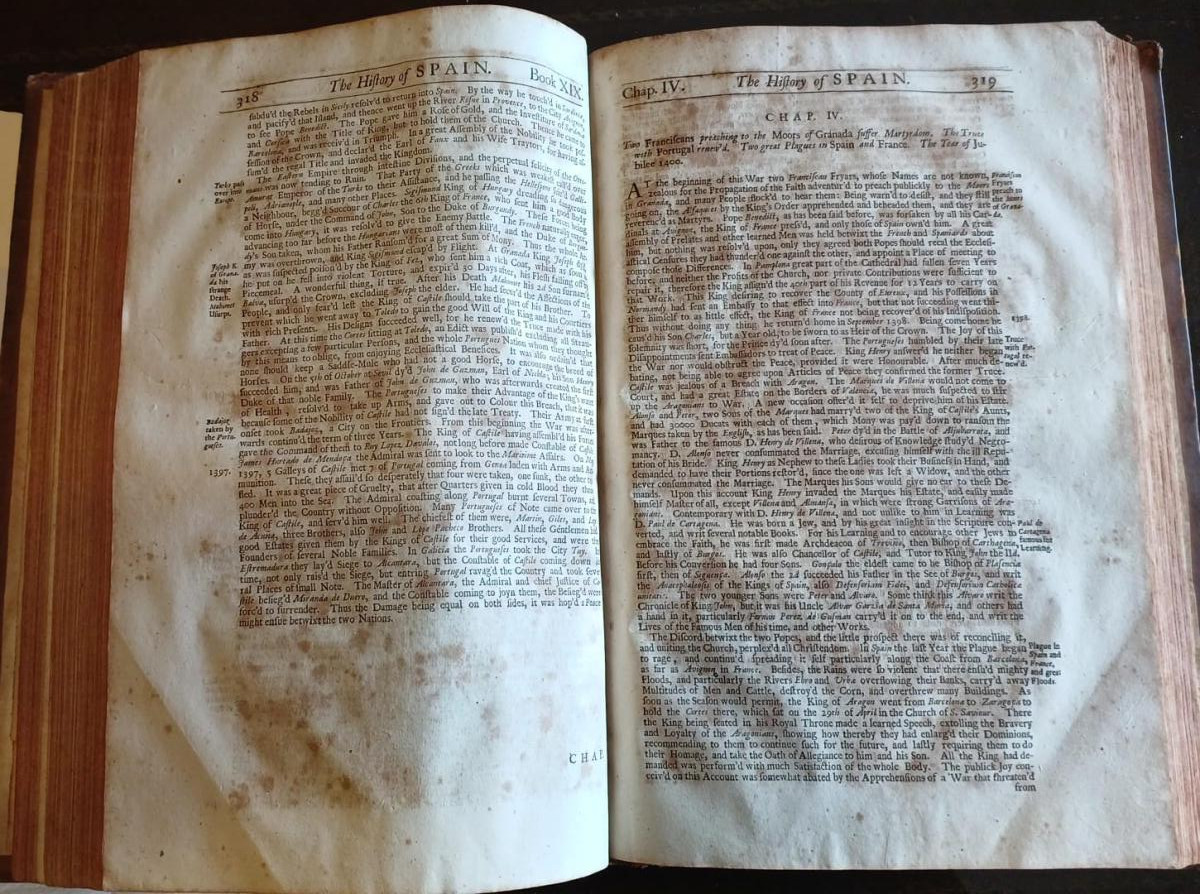 318 The History of SPAIN. Book XIX.
subdu'd the Rebels in Sicily resolv'd to return into Spain. By the way he touch'd in Sardinia,
and pacify'd that Island, and thence went up the River Rosne in Provence, to the City Avignon
to see Pope Benedict. The Pope gave him a Rose of Gold, and the Investiture of Sardinia
and Corsica with the Title of King, but to hold them of the Church. Thence he came to
Barcelona, and was receiv'd in Triumph. In a great Assembly of the Nobility, he took Pos-
session of the Crown, and declar'd the Earl of Foux and his Wife Traytors, for having as-
sum'd the regal Title and invaded the Kingdom.
Turks pass over into Europe.
The Eastern Empire through intestine Divisions, and the perpetual of the Otto-
mans was now tending to Ruin. That Party of the Greeks which was weakest call'd over
Amurat Emperor of the Turks to their Assistance, and he passing the Hellespont seiz'd Galli-
poli, Adrianople, and many other Places. Sigismund King of Hungary dreading so dangerous
a Neighbour, begg'd Succour of Charles the 6th King of France, who sent him a good body
of Horse, under the Command of John, Son to the Duke of Burgundy. These Forces being
come into Hungary, it was resolv'd to give the Enemy Battle. The French naturally eager,
advancing too far before the Hungarians were most of them kill'd, and the Duke of Burgun-
dy's Son taken, whom his Father Ransom'd for a great Sum of Mony. Thus the whole Ar-
my was overthrown, and King Sigismund escap'd by Flight. At Granada King Joseph dy'd
Joseph K. of Granada his strange Death. Mahomet Usurps.
as was suspected poison'd by the King of Fez, who sent him a rich Coat, which as soon as
he put on he felt violent Torture, and expir'd 30 Days after, his Flesh falling off by
Piecemeal. A wonderful thing, if true. After his Death Mahomet his 2d Son surnam'd
Balva, usurp'd the Crown, excluding Joseph the elder. He had secur'd the Affections of the
People, and only fear'd lest the King of Castile should take the part of his Brother. To
prevent which he went away to Toledo to gain the good Will of the King and his Courtiers
with rich Presents. His Designs succeeded well, for he renew'd the Truce made with his
Father. At this time the Cortes sitting at Toledo, an Edict was publish'd excluding all Stran-
gers excepting a few particular Persons, and the whole Portuguese Nation whom they thought
by this means to oblige, from enjoying Ecclesiastical Benefices. It was also ordain'd that
none should keep a Saddle-Mule who had not a good Horse, to encourage the breed of
Horses. On the 5th of October at Sevil dy'd John de Guzman, Earl of Niebla, his Son Henry
succeeded him, and was Father of John de Guzman, who was afterwards created the first
Duke of that noble Family. The Portugueses to make their Advantage of the King's want
of Health, resolv'd to take up Arms, and gave out to Colour this Breach, that it was
because some of the Nobility of Castile had not sign'd the late Treaty. Their Army at first
Badajoz taken by the Portugueses.
onset took Badajoz, a City on the Frontiers. From this beginning the War was after-
wards continu'd the term of three Years. The King of Castile having assembl'd his Forces
gave the Command of them to Ruy Lopez Davalos, not long before made Constable of Castile.
James Hurtado de Mendoça the Admiral was sent to look to the Maritime Affairs. On
1397. 1397, 5 Galleys of Castile met 7 of Portugal coming from Genoa laden with Arms and Am-
munition. These they assail'd so desperately that four were taken, one sunk, the other two
fled. It was a great piece of Cruelty, that after Quarters given in cold Blood they threw
400 Men into the Sea. The Admiral coasting along Portugal burnt several Towns, and
plunder'd the Country without Opposition. Many Portugueses of Note came over to the
King of Castile, and serv'd him well. The chiefest of them were, Martin, Giles, and Lope
de Acuna, three Brothers, also John and Lope Pacheco Brothers. All these Gentlemen had
good Estates given them by the Kings of Castile for their good Services, and were the
Founders of several Noble Families. In Galicia the Portugueses took the City Tuy. In
Estremadura they lay'd Siege to Alcantara, but the Constable of Castile coming down in
time, not only rais'd the Siege, but entring Portugal ravag'd the Country and took seve-
ral Places of small Note. The Master of Alcantara, the Admiral and chief Justice of Ca-
stile besieg'd Miranda de Duero, and the Constable coming to joyn them, the Besieg'd were
forc'd to surrender. Thus the Damage being equal on both sides, it was hop'd a Peace
might ensue betwixt the two Nations.
CHAP.
Chap. IV. The History of SPAIN. 319
CHAP. IV.
Two Franciscans preaching to the Moors of Granada suffer Martyrdom. The Truce
with Portugal renew'd. Two great Plagues in Spain and France. The Year of Ju-
bilee 1400.
AT the beginning of this War two Franciscan Fryars, whose Names are not known,
Franciscan Fryers preach to the Moors of Granada.
zealous for the Propagation of the Faith adventur'd to preach publickly to the Moors
in Granada, and many People flock'd to hear them: Being warn'd to desist, and they still
going on, the Alfaques by the King's Order apprehended and beheaded them, and they are
reverenc'd as Martyrs. Pope Benedict, as has been said before, was forsaken by all his Car-
dinals at Avignon, the King of France press'd, and only those of Spain own'd him. A great
assembly of Prelates and other learned Men was held betwixt the French and Spaniards about
him, but nothing was resolv'd upon, only they agreed both Popes should recal the Ecclesi-
astical Censures they had thunder'd one against the other, and appoint a Place of meeting to
compose those Differences. In Pamplona great part of the Cathedral had fallen seven Years
before, and neither the Profits of the Church, nor private Contributions were sufficient to
repair it, therefore the King assign'd the 40th part of his Revenue for 12 Years to carry on
that Work. This King desiring to recover the County of Eureux, and his Possessions in
Normandy had sent an Embassy to that effect into France, but that not succeeding went thi-
ther himself to as little effect, the King of France not being recover'd of his Indisposition.
1398.
Thus without doing any thing he return'd home in September 1398. Being come home he
caus'd his Son Charles, but a Year old, to be sworn to as Heir of the Crown. The Joy of this
solemnity was short, for the Prince dy'd soon after. The Portugueses humbled by their late
Truce with Portugal renew'd.
Disappointments sent Embassadors to treat of Peace. King Henry answer'd he neither began
the War nor would obstruct the Peace, provided it were Honourable. After much de-
bating, not being able to agree upon Articles of Peace they confirmed the former Truce.
Castile was jealous of a Breach with Aragon. The Marques de Villena would not come to
Court, and had a great Estate on the Borders of Valencia, he was much suspected to stir
up the Aragonians to War. A new occasion offer'd it self to deprive him of his Estate.
Alonso and Peter, two Sons of the Marques had marry'd two of the King of Castile's Aunts,
and had 30000 Ducats with each of them, which Mony was pay'd down to ransom the
Marques taken by the English, as has been said. Peter dy'd in the Battle of Aljubarrota, and
was Father to the famous D. Henry de Villena, who desirous of Knowledge study'd Negro-
mancy. D. Alonso never consummated the Marriage, excusing himself with the ill Repu-
tation of his Bride. King Henry as Nephew to these Ladies took their Business in Hand, and
demanded to have their Portions restor'd, since the one was left a Widow, and the other
never consummated the Marriage. The Marques his Sons would give no ear to these De-
mands. Upon this account King Henry invaded the Marques his Estate, and easily made
himself Master of all, except Villena and Almansa, in which were strong Garrisons of Ara-
gonians. Contemporary with D. Henry de Villena, and not unlike to him in Learning was
Paul de Cartagena famous for Learning.
D. Paul de Cartagena. He was born a Jew, and by his great insight in the Scripture con-
verted, and writ several notable Books. For his Learning and to encourage other Jews to
embrace the Faith, he was first made Archdeacon of Treviño, then Bishop of Carthagena,
and lastly of Burgos. He was also Chancellor of Castile, and Tutor to King John the IId.
Before his Conversion he had four Sons. Gonçalo the eldest came to be Bishop of Plasencia
first, then of Siguença. Alonso the 2d succeeded his Father in the See of Burgos, and writ
the Anacephaleosis of the Kings of Spain, also Defensorium Fidei, and Defensorium Catholicæ
unitatis. The two younger Sons were Peter and Alvaro. Some think this Alvaro writ the
Chronicle of King John, but it was his Uncle Alvar Garzia de Santa Maria, and others had
a hand in it, particularly Fernan Perez de Gusman carry'd it on to the end, and writ the
Lives of the Famous Men of his time, and other Works.
The Discord betwixt the two Popes, and the little prospect there was of reconciling it,
and uniting the Church, perplex'd all Christendom. In Spain the last Year the Plague began
Plague in Spain and France, and great Floods.
to rage, and continu'd spreading it self particularly along the Coast from Barcelona,
as far as Avignon in France. Besides, the Rains were so violent that there ensu'd mighty
Floods, and particularly the Rivers Ebro and Orba overflowing their Banks, carry'd away
Multitudes of Men and Cattle, destroy'd the Corn, and overthrew many Buildings. As
soon as the Season would permit, the King of Aragon went from Barcelona to Zaragoza to
hold the Cortes there, which sat on the 29th of April in the Church of S. Saviour. There
the King being seated in his Royal Throne made a learned Speech, extolling the Bravery
and Loyalty of the Aragonians, showing how thereby they had enlarg'd their Dominions,
recommending to them to continue such for the future, and lastly requiring them to do
their Homage, and take the Oath of Allegiance to him and his Son. All the King had de-
manded was perform'd with much Satisfaction of the whole Body. The publick Joy con-
ceiv'd on this Account was somewhat abated by the Apprehensions of a War that threaten'd
from